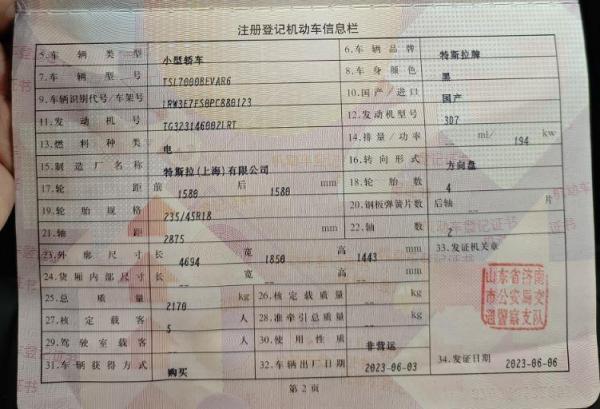 注册登记机动车信息栏
5.车辆类型 小型轿车 6.车辆品牌 特斯拉牌
7.车辆型号 TSL7000BEVAR6 8.车身颜色 黑
9.车辆识别代号/车架号 LRW3E7FS0PC880123 10.国产/进口 国产
11.发动机号 TG323146002LRT 12.发动机型号 3D7
13.燃料种类 电 14.排量/功率 -- ml/ 194 kw
15.制造厂名称 特斯拉(上海)有限公司 16.转向形式 方向盘
17.轮距 前 1580 后 1580 mm 18.轮胎数 4
19.轮胎规格 235/45R18 20.钢板弹簧片数 后轴 -- 片
21.轴距 2875 mm 22.轴数 2
23.外廓尺寸 长 4694 宽 1850 高 1443 mm 33.发证机关章
24.货厢内部尺寸 长 -- 宽 -- 高 -- mm
山东省济南
市公安局交
通警察支队
25.总质量 2170 kg 26.核定载质量 -- kg
27.核定载客 5 人 28.准牵引总质量 -- kg
29.驾驶室载客 -- 人 30.使用性质 非营运
31.车辆获得方式 购买 32.车辆出厂日期 2023-06-03 34.发证日期 2023-06-06
第2页